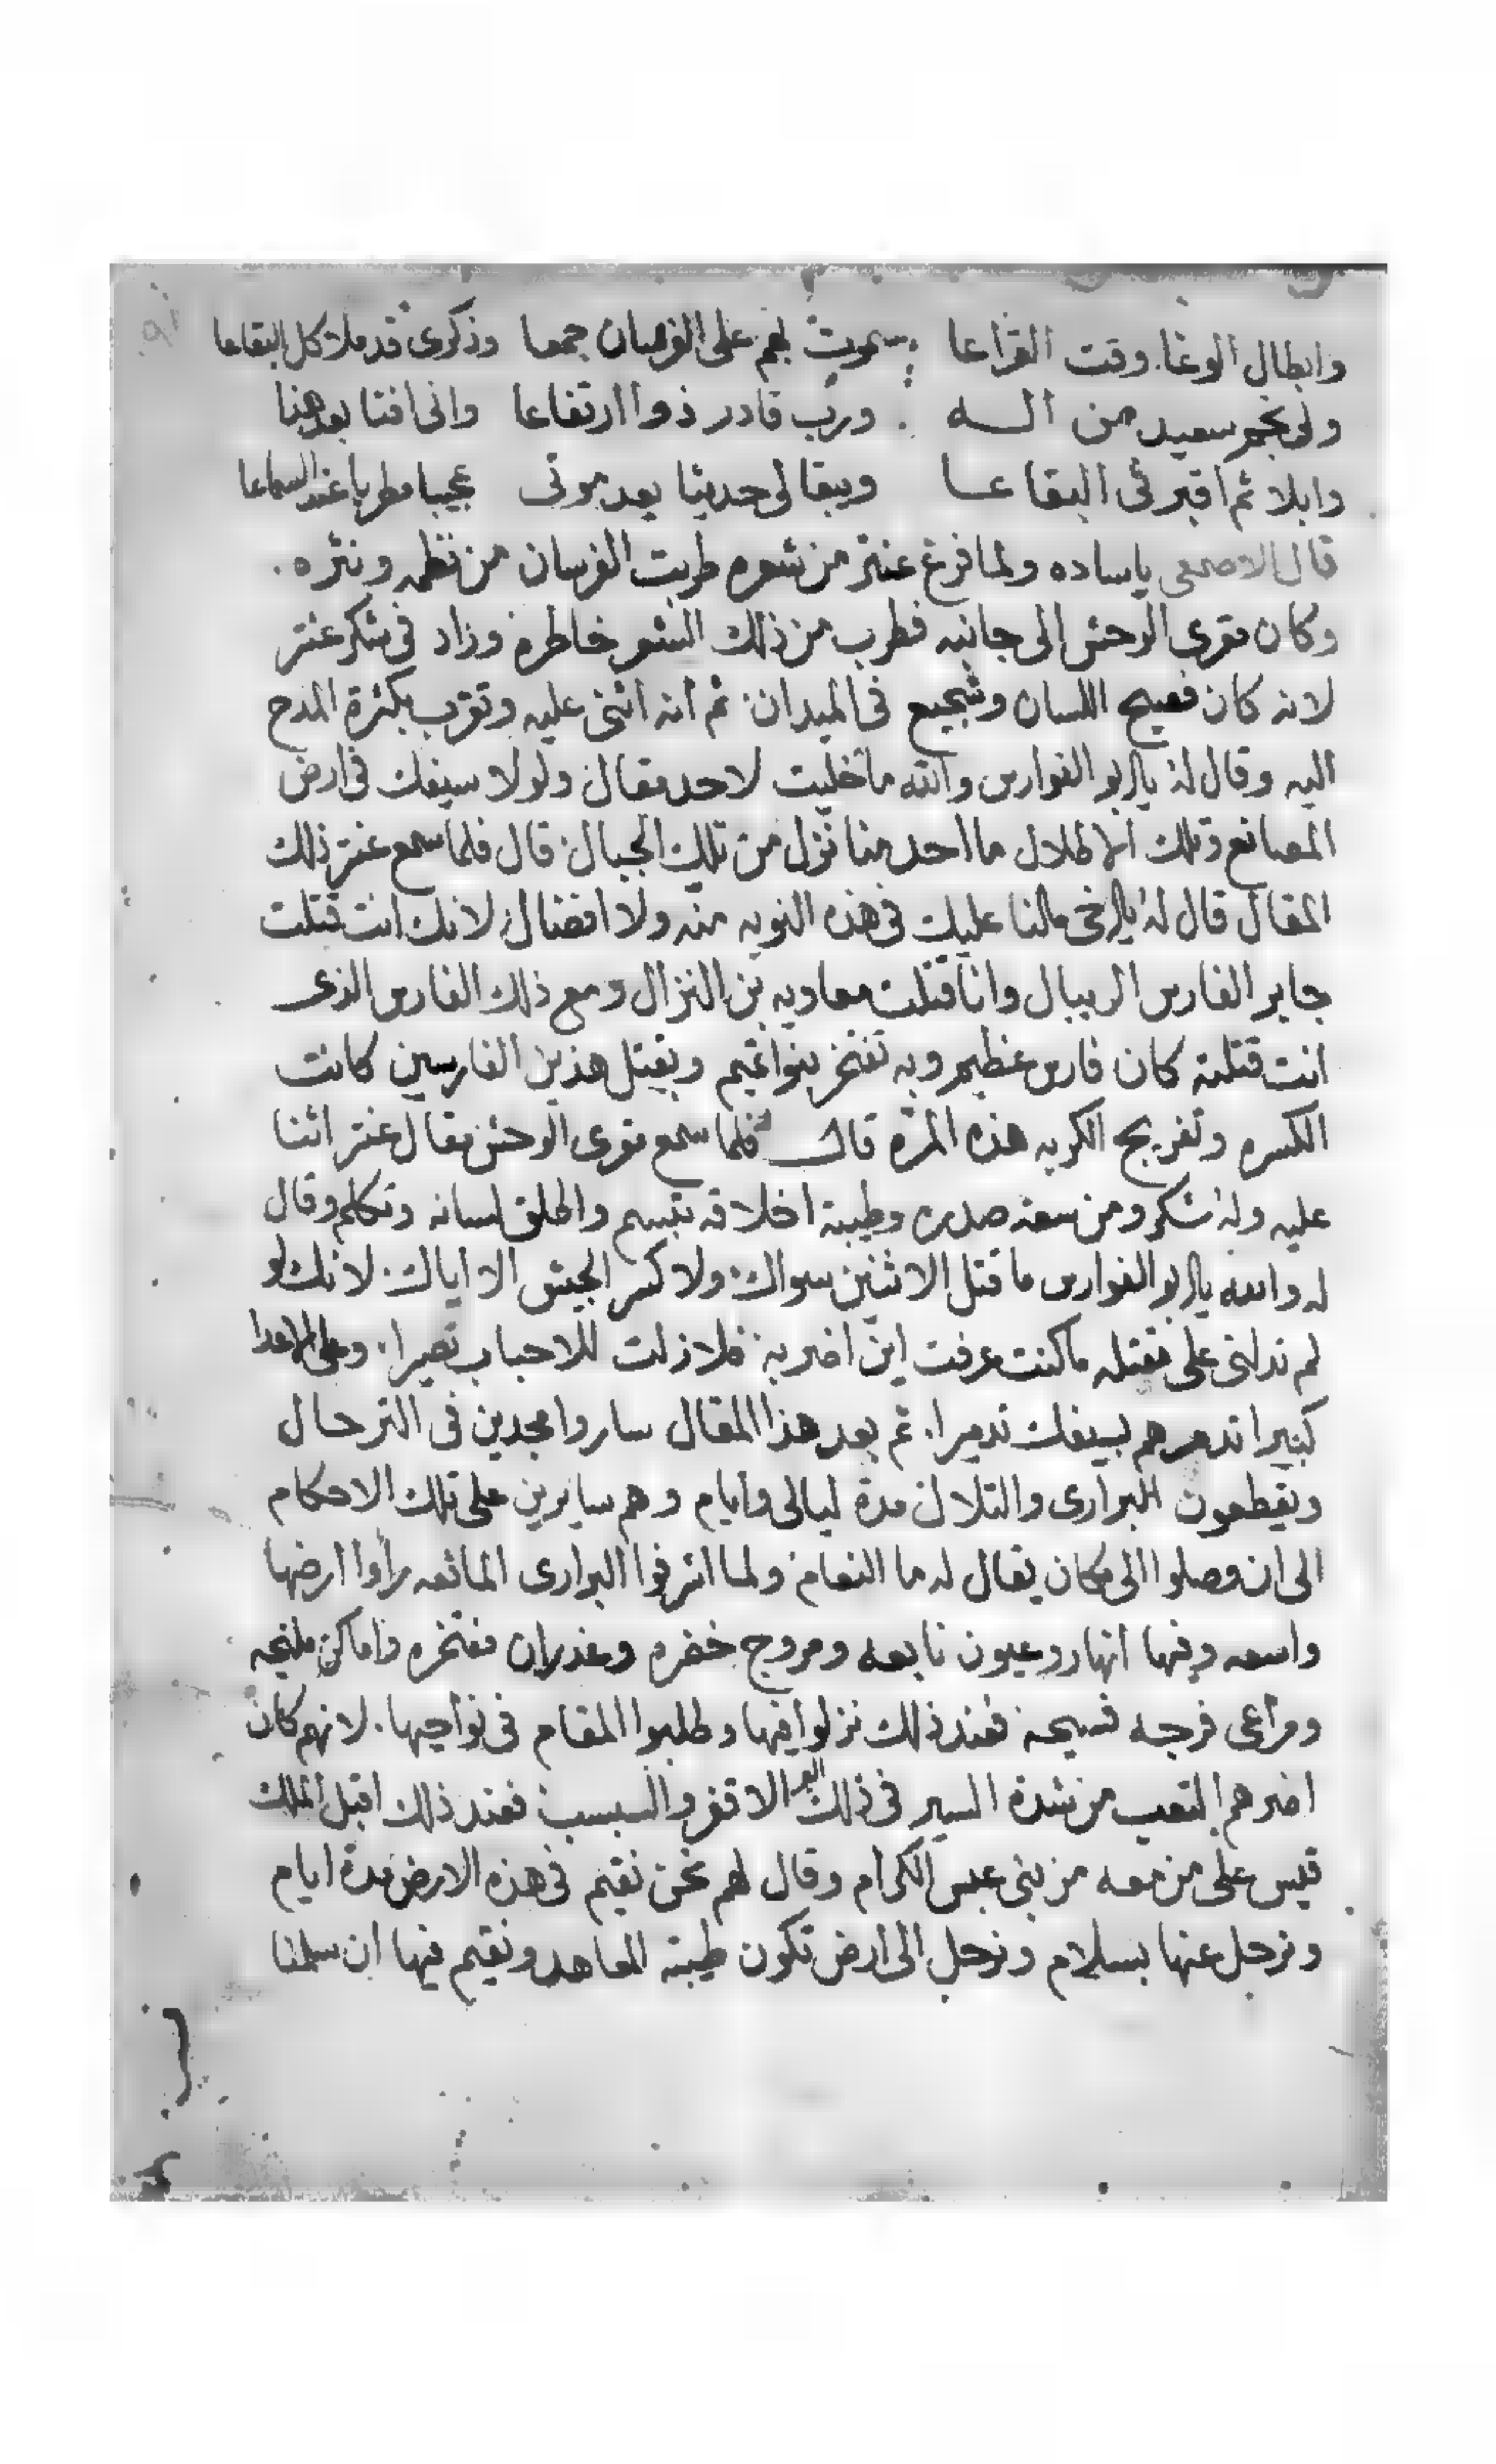 وابطال الوغا وقت القراعا سموت بهم على الفرسان جمعا وذكرى قد ملا كل البقاعا
ولى نجم سعيد من اله ورب قادر ذوا ارتفاعا وانى افنا بعد هنا
وابلا ثم اقبر فى البقاعا ويبقا لى حديثا بعد موتى عجيبا مطربا عند السماعا
قال الاصمعى ياساده ولما فرغ عنتر من شعره طربت الفرسان من نظمه ونثره
وكان مقرى الوحش الى جانبه فطرب من ذلك الشعر خاطره وزاد فى شكر عنتر
لانه كان فصيح اللسان وشجيع فى الميدان ثم انه اثنى عليه وتقرب بكثرة المدح
اليه وقال له يا ابو الفوارس والله ما خليت لاحد مقال ولولا سيفك فى ارض
المصانع وتلك الاطلال ما احد منا نزل من تلك الجبال قال فلما سمع عنتر ذلك
المقال قال له يا اخى مالنا عليك فى هذه النوبه منه ولا افضال لانك انت قتلت
جابر الفارس الريبال وانا قتلت معاويه بن النزال ومع ذلك الفارس الذى
انت قتلته كان فارس عظيم وبه تفتخر بنوا تميم وبقتل هذين الفارسين كانت
الكسره وتفريج الكربه هذه المره قال فلما سمع مقرى الوحش مقال عنتر اثنا
عليه وله شكر ومن سعة صدره وطيبة اخلاقه تبسم واطلق لسانه وتكلم وقال
له والله يا ابو الفوارس ما قتل الاثنين سواك ولا كسر الجيش الا اياك لانك لو
لم تدلنى على مقتله ما كنت عرفت اين اضربه فلا زلت للاحباب نصيرا وعلى الاعدا
كبيرا تدمرهم بسيفك تدميرا ثم بعد هذا المقال ساروا مجدين فى الترحال
ويقطعون البرارى والتلال مدة ليالى وايام وهم سايرين على تلك الاحكام
الى ان وصلوا الى مكان يقال له ما النعام ولما اشرفوا البرارى رأوا ارضها
واسعه وفيها انهار وعيون نابعه ومروج خضره وغدران مفتخره واماكن مليحه
ومراعى فرجه فسيحه فعند ذلك نزلوا فيها وطلبوا المقام فى نواحيها لانهم كان
اضرهم التعب من شدة السير فى ذلك البر الاقفر والسبسب فعند ذلك اقبل الملك
قيس على من معه من بنى عبس الكرام وقال لهم نحن نقيم فى هذه الارض مدة ايام
ونرحل عنها بسلام ونرحل الى ارض تكون طيبة المعاهد ونقيم فيها ان سلمنا